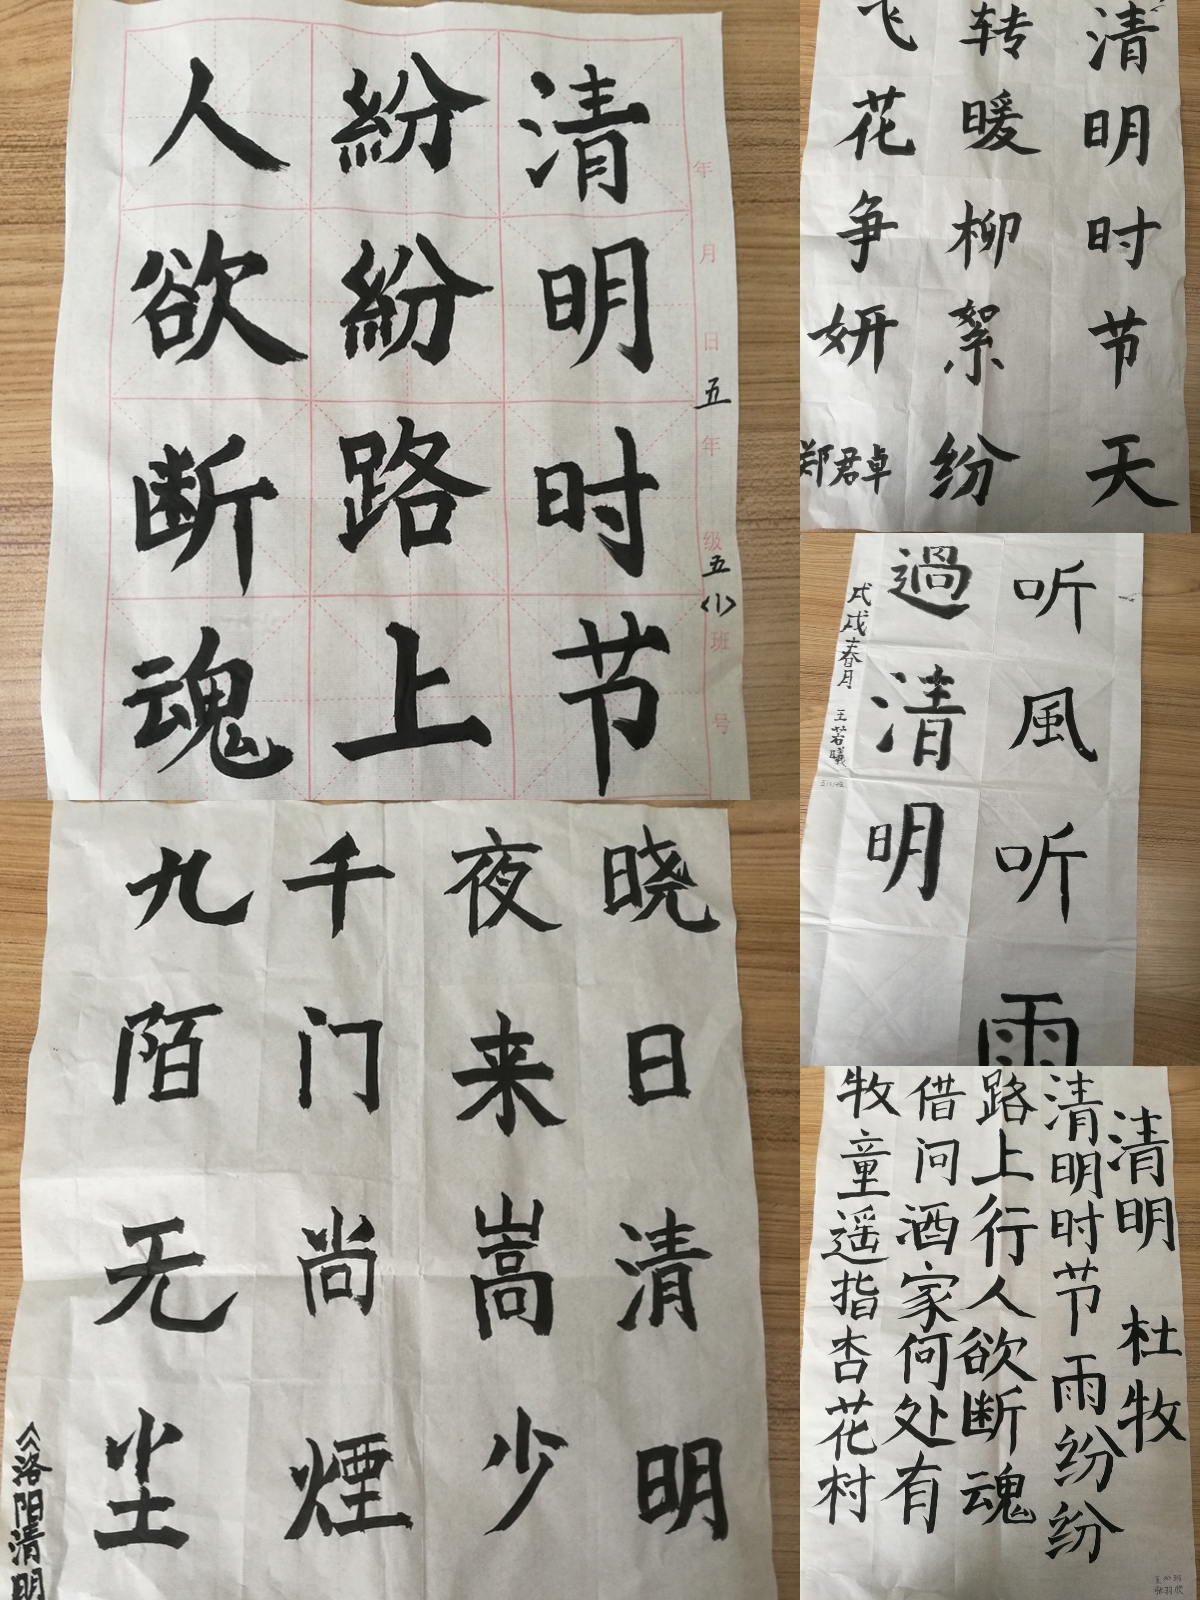 年月日五年级五〈1〉班号
清明时节
紛紛路上
人欲断魂
清明时节天
转暖柳絮纷
飞花争妍
郑君卓
听風听雨
過清明
戊戌春月 王若曦
晓日清明
夜来嵩少
千门尚煙
九陌无尘
《洛阳清明
清明 杜牧
清明时节雨纷纷
路上行人欲断魂
借问酒家何处有
牧童遥指杏花村